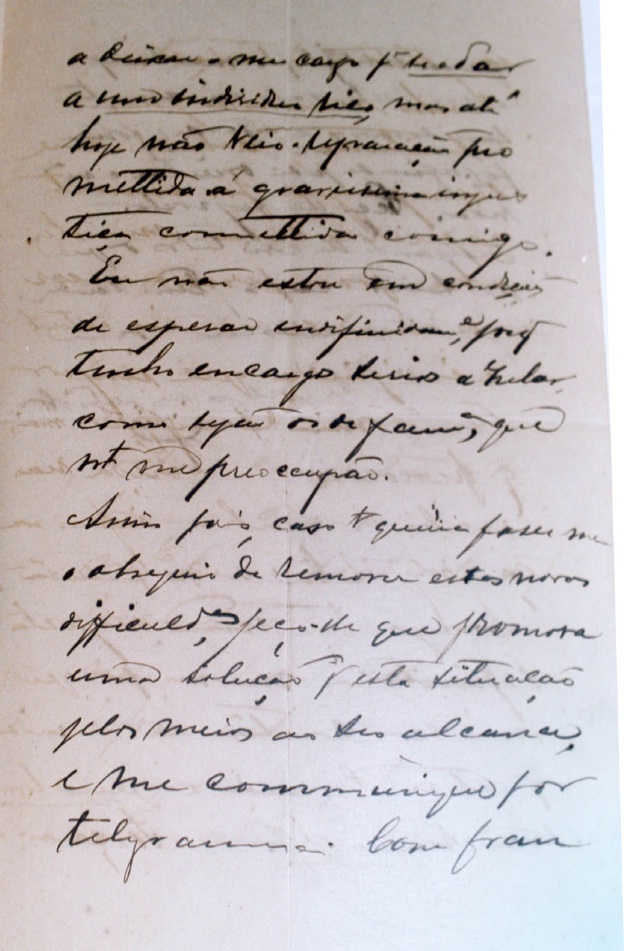 a deixar o meu cargo pª se a dar
a um individuo rico, mas até
hoje não veio a reparação pro
mettida á gravissima injus
tiça comettida comigo.
Eu não estou em condições
de esperar indifinidamᵉ, porq̃
tenho encargos serios a zelar,
como sejão os de famᵃ, que
mᵗᵒ me preoccupão.
Assim pois, caso queira faser me
o obsequio de remover estes novos
difficuldᵉˢ, peço-lhe que promova
uma solução pª esta situação
pelos meios ao seu alcance,
e me communique por
telegramma. Com fran